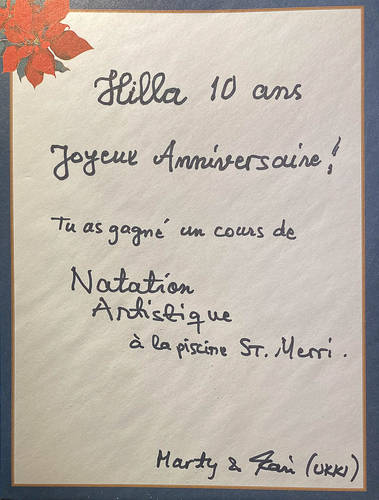 Hilla 10 ans
Joyeux Anniversaire!
Tu as gagné un cours de
Natation
Artistique
à la piscine St. Merri.
Marty & Kari (UKKI)